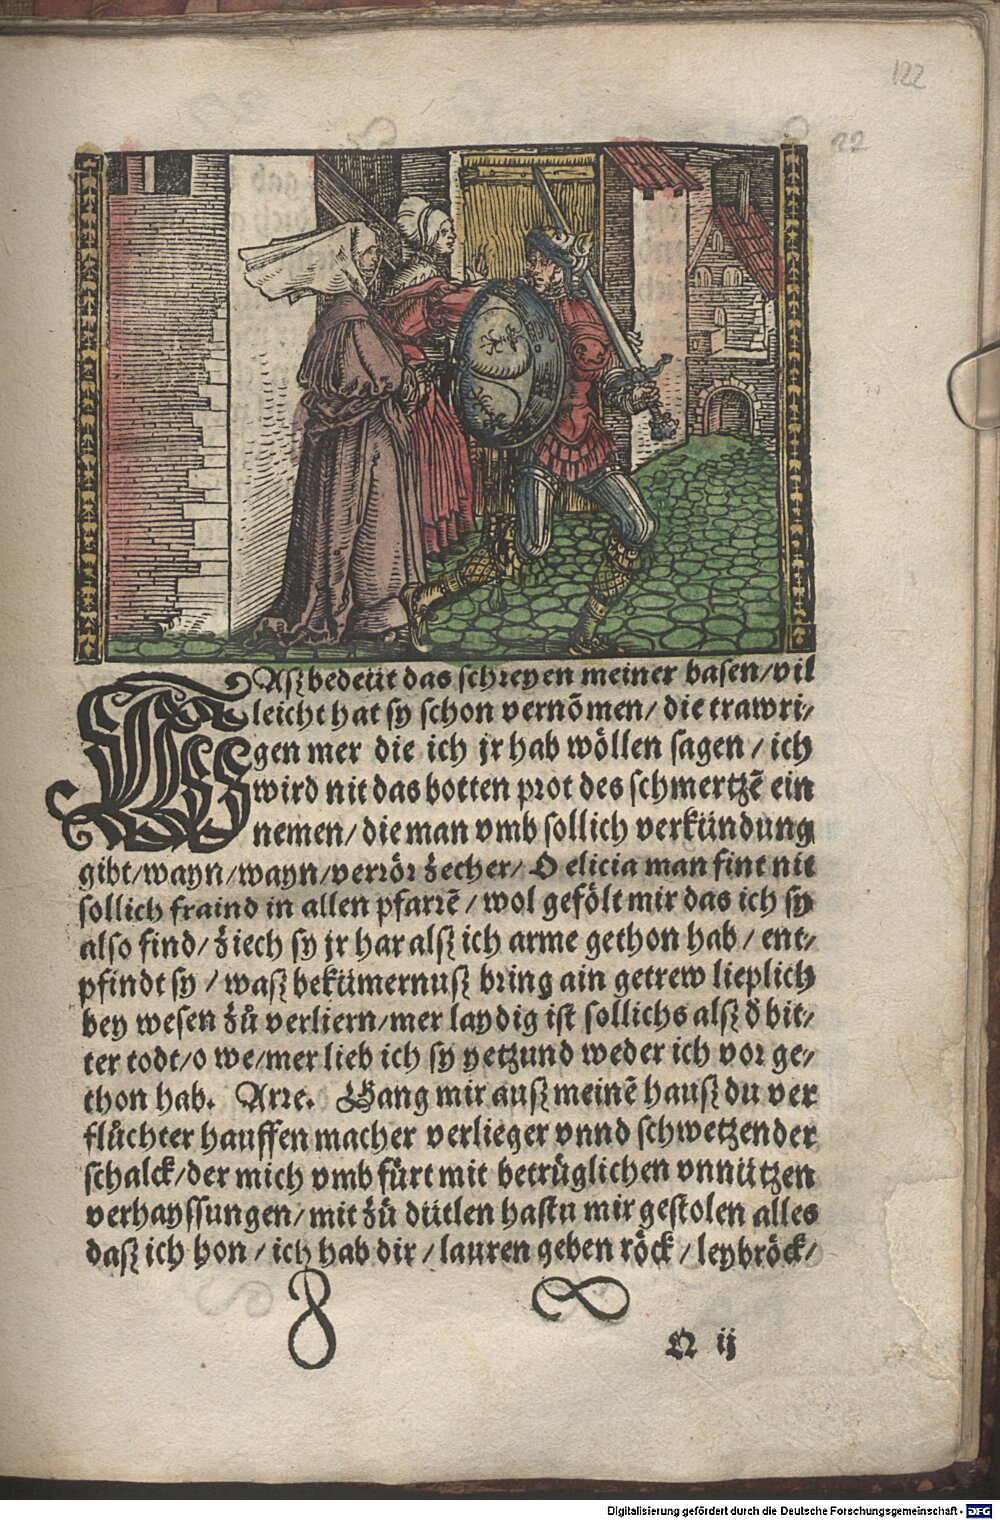 122
22
WAſz bedeüt das ſchreyen meiner baſen/vil
leicht hat ſy ſchon vernōmen/ die trawri/
gen mer die ich jr hab wöllen ſagen / ich
wird nit das botten prot des ſchmertzē ein
nemen/ die man vmb ſollich verkündung
gibt/wayn/wayn/verrör zecher/ O elicia man fint nit
ſollich fraind in allen pfarrē / wol gefölt mir das ich ſy
alſo find/ ziech ſy jr har alſz ich arme gethon hab / ent/
pfindt ſy / waſz bekümernuſz bring ain getrew lieplich
bey weſen zů verliern/mer laydig iſt ſollichs alſz d̄ bit/
ter todt/o we/mer lieb ich ſy yetzund weder ich vor ge/
thon hab. Arre. Gang mir auſz meinē hauſz du ver
flůchter hauffen macher verlieger vnnd ſchwetzender
ſchalck/der mich vmb fürt mit betrüglichen vnnützen
verhayſſungen/ mit zů dütlen haſtu mir geſtolen alles
daſz ich hon / ich hab dir / lauren geben röck / leybröck/
N ij
Digitalisierung gefördert durch die Deutsche Forschungsgemeinschaft - DFG